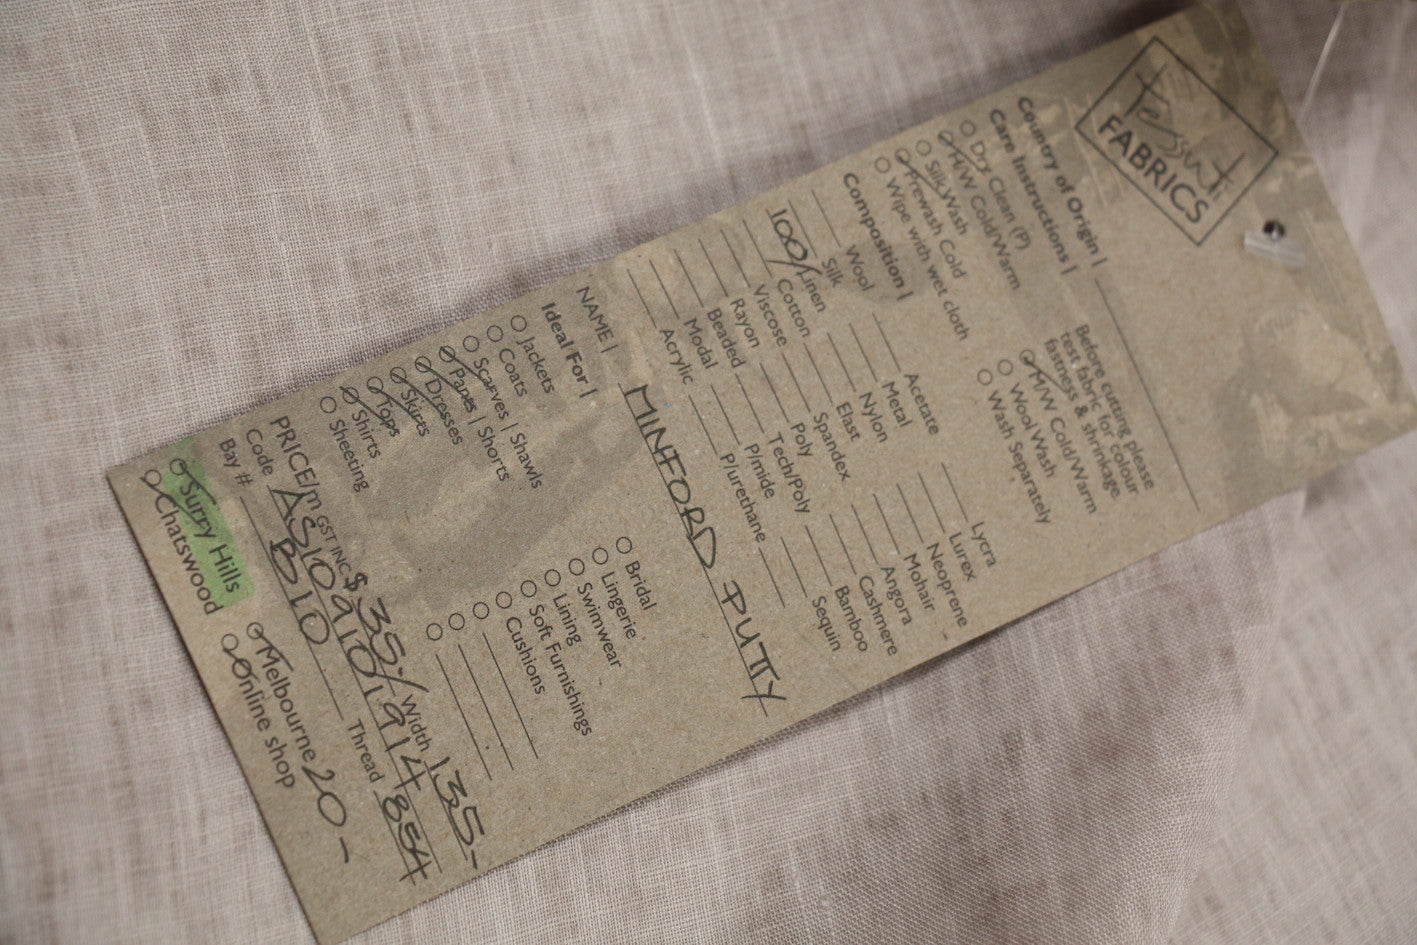 Tessuti
FABRICS
Country of Origin |
Care Instructions |
Dry Clean (P)
H/W Cold/Warm
Silk Wash
Prewash Cold
Wipe with wet cloth
Before cutting please
test fabric for colour
fastness & shrinkage
H/W Cold/Warm
Wool Wash
Wash Separately
Composition |
Wool
Silk
100/ Linen
Cotton
Viscose
Rayon
Beaded
Modal
Acrylic
Acetate
Metal
Nylon
Elast
Spandex
Poly
Tech/Poly
P/mide
P/urethane
Lycra
Lurex
Neoprene
Mohair
Angora
Cashmere
Bamboo
Sequin
NAME | MINFORD PUTTY
Ideal For |
Jackets
Coats
Scarves | Shawls
Pants | Shorts
Dresses
Skirts
Tops
Shirts
Sheeting
Bridal
Lingerie
Swimwear
Lining
Soft Furnishings
Cushions
PRICE/m GST INC $35-/ Width 135-
Code AS109101914
Bay # B10 Thread 854
Surry Hills
Chatswood
Melbourne 20-
Online shop